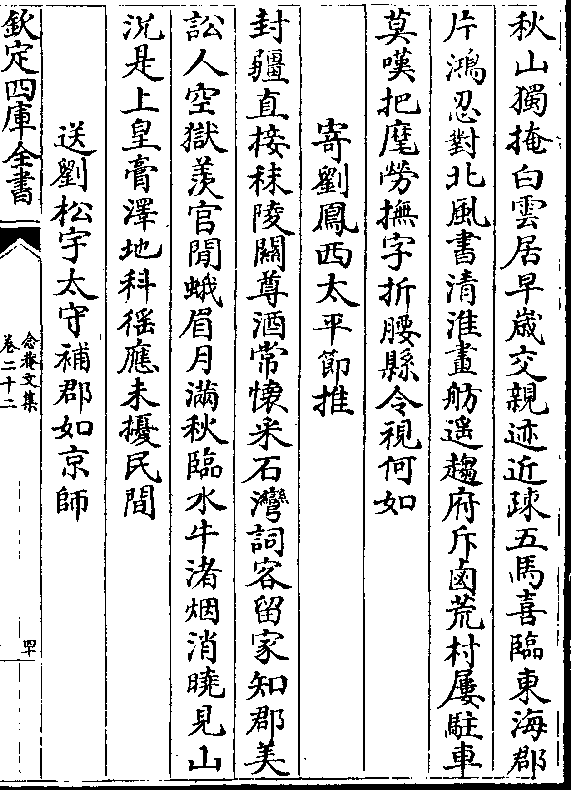 秋山獨掩白雲居早嵗交親迹近踈五馬喜臨東海郡
片鴻忍對北風書清淮畫舫遥趨府斥鹵荒村屢駐車
莫嘆把麾勞撫字折腰縣令視何如
寄劉鳳西太平節推
封疆直接秣陵闗尊酒常懷采石灣詞客留家知郡美
訟人空獄羨官閒蛾眉月滿秋臨水牛渚烟消曉見山
况是上皇膏澤地科徭應未擾民間
送劉松宇太守補郡如京師
欽定四庫全書
念菴文集
卷二十二
罕